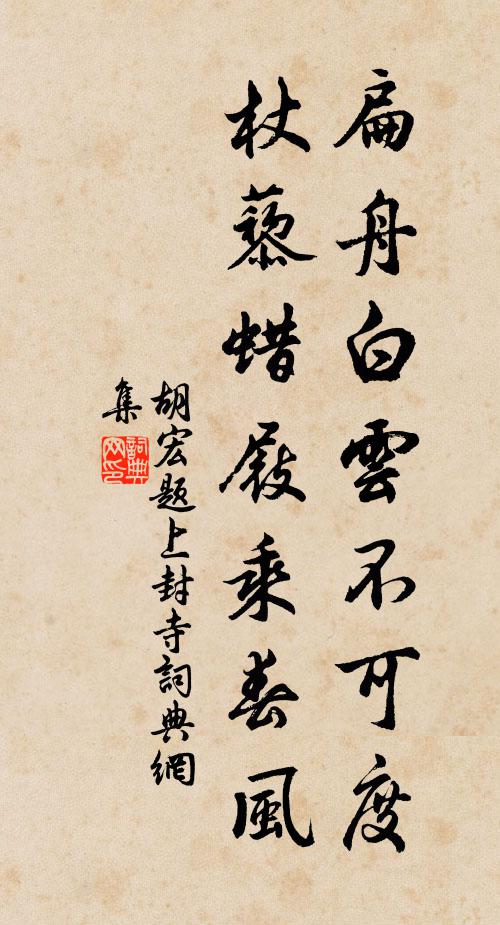 扁舟白雲不可度
杖藜蜡屐乘春風
胡宏題上封寺詞典網
集
詞典網印